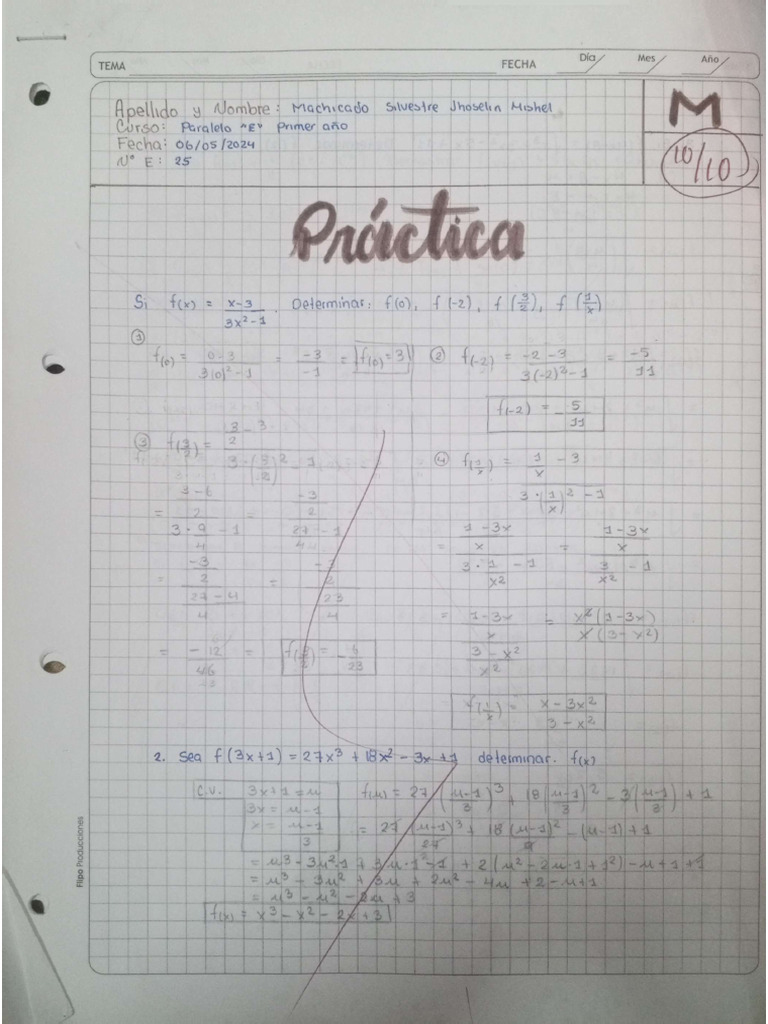 TEMA FECHA Día Mes Año
Apellido y Nombre: Machicado Silvestre Jhoselin Mishel
Curso: Paralelo "E" Primer año
Fecha: 06/05/2024
N° E: 25
M
10/10
Práctica
Si f(x) = (x-3)/(3x²-1). Determinar: f(0), f(-2), f(3/2), f(1/x)
① f(0) = (0-3)/(3(0)²-1) = -3/-1 = f(0) = 3
② f(-2) = (-2-3)/(3(-2)²-1) = -5/11
f(-2) = -5/11
③ f(3/2) = (3/2 - 3)/(3·(3/2)² - 1)
= ((3-6)/2)/(3·9/4 - 1) = (-3/2)/(27/4 - 1)
= (-3/2)/((27-4)/4) = (-3/2)/(23/4)
= -12/46 = f(3/2) = -6/23
④ f(1/x) = (1/x - 3)/(3·(1/x)² - 1)
= ((1-3x)/x)/(3·1/x² - 1) = ((1-3x)/x)/(3/x² - 1)
= ((1-3x)/x)/((3-x²)/x²) = x²(1-3x)/x(3-x²)
f(1/x) = (x-3x²)/(3-x²)
2. Sea f(3x+1) = 27x³ + 18x² - 3x + 1 determinar. f(x)
C.V. 3x+1 = u
3x = u-1
x = (u-1)/3
f(u) = 27((u-1)/3)³ + 18((u-1)/3)² - 3((u-1)/3) + 1
= 27(u-1)³/27 + 18(u-1)²/9 - (u-1) + 1
= u³ - 3u²·1 + 3u·1² - 1 + 2(u² - 2u·1 + 1²) - u + 1 + 1
= u³ - 3u² + 3u + 2u² - 4u + 2 - u + 1
= u³ - u² - 2u + 3
f(x) = x³ - x² - 2x + 3
Filpo Producciones